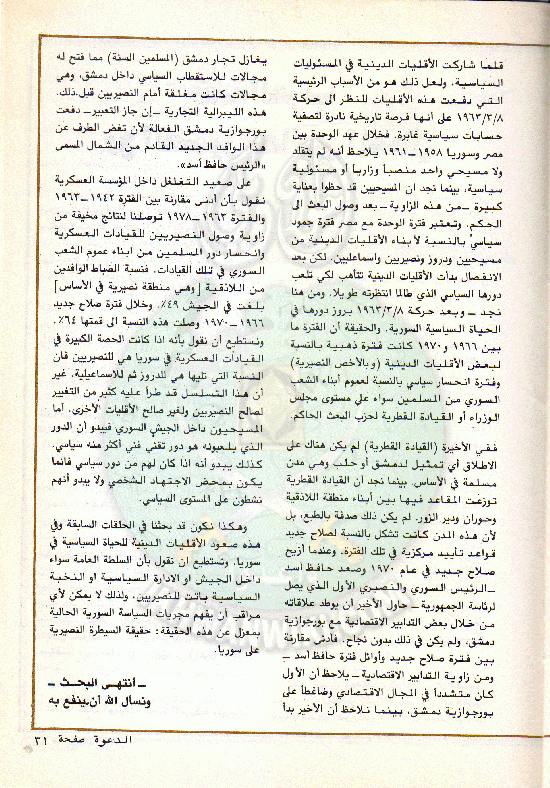 قلما شاركت الأقليات الدينية في المسئوليات
السياسية، ولعل ذلك هو من الأسباب الرئيسية
التي دفعت هذه الأقليات للنظر الى حركة
١٩٦٣/٣/٨ على أنها فرصة تاريخية نادرة لتصفية
حسابات سياسية غابرة. فخلال عهد الوحدة بين
مصر وسوريا ١٩٥٨ – ١٩٦١ يلاحظ أنه لم يتقلد
ولا مسيحي واحد منصباً وزارياً أو مسئولية
سياسية، بينما نجد ان المسيحيين قد حظوا بعناية
كبيرة – من هذه الزاوية – بعد وصول البعث الى
الحكم. وتعتبر فترة الوحدة مع مصر فترة جمود
سياسي بالنسبة لأبناء الأقليات الدينية من
مسيحيين ودروز ونصيريين واسماعيليين. لكن بعد
الانفصال بدأت الأقليات الدينية تتأهب لكي تلعب
دورها السياسي الذي طالما انتظرته طويلا. ومن هنا
نجد – وبعد حركة ١٩٦٣/٣/٨ بروز دورها في
الحياة السياسية السورية. والحقيقة أن الفترة ما
بين ١٩٦٦ و١٩٧٠ كانت فترة ذهبية بالنسبة
لبعض الأقليات الدينية (وبالأخص النصيرية)
وفترة انحسار سياسي بالنسبة لعموم أبناء الشعب
السوري من المسلمين سواء على مستوى مجلس
الوزراء أو القيادة القطرية لحزب البعث الحاكم.
ففي الأخيرة (القيادة القطرية) لم يكن هناك على
الاطلاق أي تمثيل لدمشق أو حلب وهي مدن
مسلمة في الأساس. بينما نجد أن القيادة القطرية
توزعت المقاعد فيها بين أبناء منطقة اللاذقية
وحوران ودير الزور. لم يكن ذلك صدفة بالطبع، بل
لأن هذه المدن كانت تشكل بالنسبة لصلاح جديد
قواعد تأييد مركزية في تلك الفترة. وعندما أزيح
صلاح جديد في عام ١٩٧٠ وصعد حافظ أسد
– الرئيس السوري والنصيري الأول الذي يصل
لرئاسة الجمهورية – حاول الأخير أن يوطد علاقاته
من خلال بعض التدابير الاقتصادية مع بورجوازية
دمشق، ولم يكن في ذلك بدون نجاح. فأدنى مقارنة
بين فترة صلاح جديد وأوائل فترة حافظ أسد –
ومن زاوية التدابير الاقتصادية – يلاحظ أن الأول
كان متشدداً في المجال الاقتصادي وضاغطاً على
بورجوازية دمشق، بينما نلاحظ أن الأخير بدأ
يغازل تجار دمشق (المسلمين السنة) مما فتح له
مجالات للاستقطاب السياسي داخل دمشق، وهي
مجالات كانت مغلقة أمام النصيريين قبل ذلك.
هذه الليبرالية التجارية – إن جاز التعبير – دفعت
بورجوازية دمشق الفعالة لأن تغض الطرف عن
هذا الوافد الجديد القادم من الشمال المسمى
«الرئيس حافظ أسد».
على صعيد التغلغل داخل المؤسسة العسكرية
نقول بأن أدنى مقارنة بين الفترة ١٩٤٢ – ١٩٦٣
والفترة ١٩٦٣ – ١٩٧٨ توصلنا لنتائج مخيفة من
زاوية وصول النصيريين للقيادات العسكرية
وانحسار دور المسلمين من أبناء عموم الشعب
السوري في تلك القيادات. فنسبة الضباط الوافدين
من اللاذقية [وهي منطقة نصيرية في الأساس]
بلغت في الجيش ٤٩٪. وخلال فترة صلاح جديد
١٩٦٦ – ١٩٧٠ وصلت هذه النسبة الى قمتها ٦٤٪.
ونستطيع أن نقول بأنه اذا كانت الحصة الكبيرة في
القيادات العسكرية في سوريا هي للنصيريين فان
النسبة التي تليها هي للدروز ثم للاسماعيلية. غير
أن هذا التسلسل قد طرأ عليه كثير من التغيير
لصالح النصيريين ولغير صالح الأقليات الأخرى. أما
المسيحيون داخل الجيش السوري فيبدو أن الدور
الذي يلعبونه هو دور تقني فني أكثر منه سياسي.
كذلك يبدو أنه اذا كان لهم من دور سياسي فانما
يكون بمحض الاجتهاد الشخصي ولا يبدو أنهم
نشطون على المستوى السياسي.
وهكذا نكون قد بحثنا في الحلقات السابقة وفي
هذه صعود الأقليات الدينية للحياة السياسية في
سوريا. ونستطيع ان نقول بأن السلطة العامة سواء
داخل الجيش أو الادارة السياسية او النخبة
السياسية باتت للنصيريين. ولذلك لا يمكن لأي
مراقب ان يفهم مجريات السياسة السورية الحالية
بمعزل عن هذه الحقيقة: حقيقة السيطرة النصيرية
على سوريا.
– انتهى البحث –
ونسأل الله أن ينفع به
الدعوة صفحة ٣١